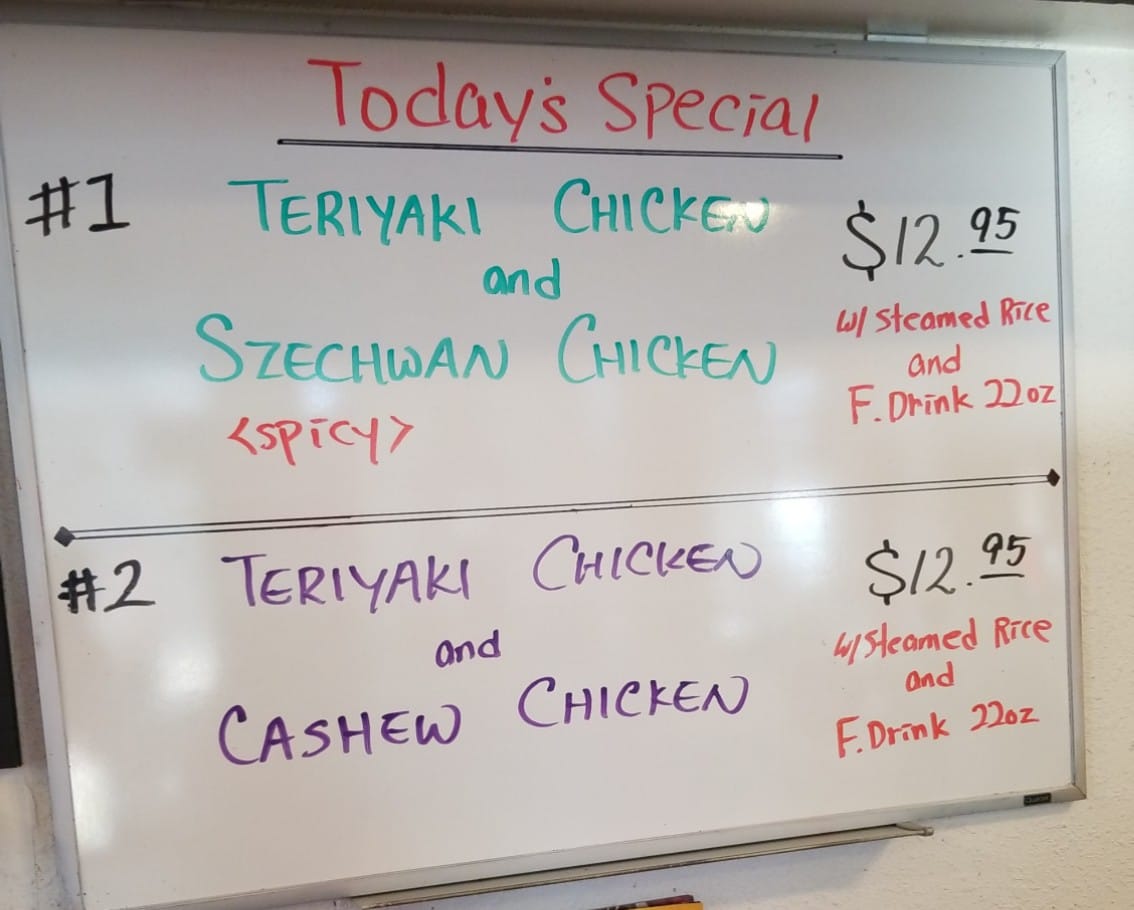 Today's Special
#1 TERIYAKI CHICKEN $12.95
and
SZECHWAN CHICKEN
<spicy>
w/ Steamed Rice
and
F. Drink 22oz
#2 TERIYAKI CHICKEN $12.95
and
CASHEW CHICKEN
w/ Steamed Rice
and
F. Drink 22oz